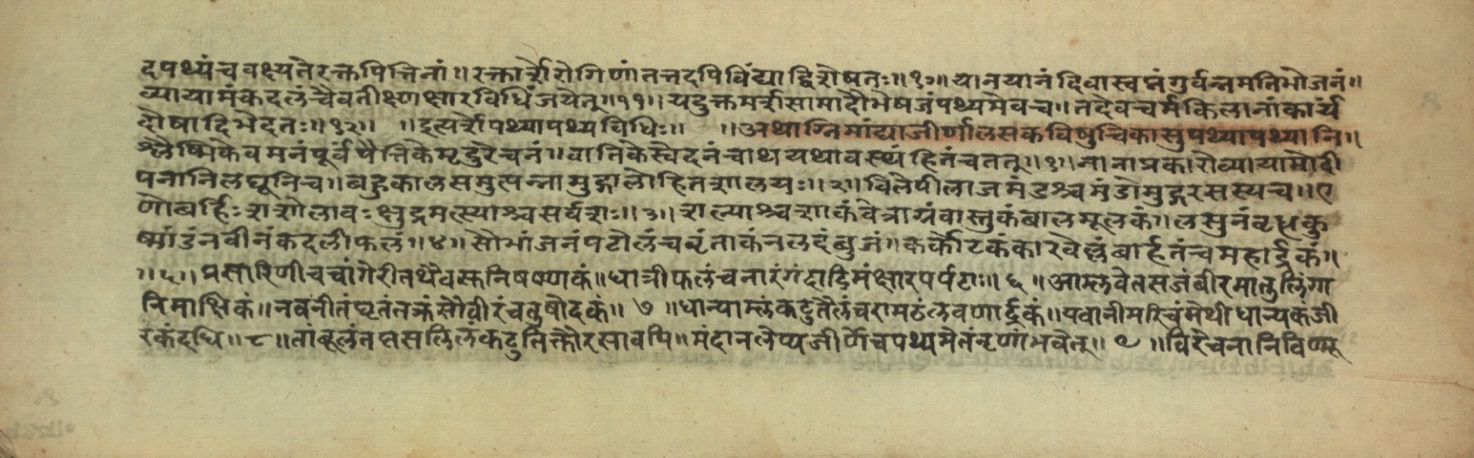 दपथ्यंचवक्ष्यतेरक्तपित्तिनां॥रक्तार्शोरोगिणांतत्तदपिविंद्याद्विशेषतः॥१०॥यानयानंदिवास्वप्नंगुर्वन्नमतिभोजनं॥
व्यायामंकदलंचैवतीक्ष्णक्षारविधिंजयेत्॥११॥यदुक्तमर्शसामादौभेषजंपथ्यमेवच॥तदेवचर्मकिलानांकार्य
दोषादिभेदतः॥१२॥ ॥इत्यर्शोपथ्यापथ्यविधिः॥ ॥अथाग्निमांद्याजीर्णालसकविषुचिकासुपथ्यापथ्यानि॥
श्लेष्मिकेवमनंपूर्वंपैत्तिकेमृदुरेचनं॥वातिकेस्वेदनंचाथयथावस्थंहितंचतत्॥१॥नानाप्रकारोव्यायामोदी
पनानिलघूनिच॥बहुकालसमुत्पन्नामुद्गालोहितशालयः॥२॥विलेपीलाजमंडश्चमंडोमुद्गरसस्यच॥ए
णोबर्हिःशशोलावःक्षुद्रमत्स्याश्चसर्वशः॥३॥शाल्याश्चशाकंवेत्राग्रंवास्तुकंबालमूलकं॥लसुनंवृधकु
ष्मांडंनवीनंकदलीफलं॥४॥सौभांजनंपटोलंचवृंताकंनलदंबुजं॥कर्कोटकंकारवेल्लंबार्हतंचमहार्द्रकं॥
॥५॥प्रसारिणीचचांगेरीतथैवस्कनिषण्णकं॥धात्रीफलंचनारंगंदाडिमंक्षारपर्पटाः॥६॥आम्लवेतसजंबीरमातुलिंगा
निमाक्षिकं॥नवनीतंघृतंतक्रंसौवीरंचतुषोदकं॥७॥धान्याम्लंकटुतैलंचरामठंलवणार्द्रकं॥यवानीमरिचंमेथीधान्यकजी
रकंदधि॥८॥तांबूलंतप्तसलिलंकटुतिक्तौरसावपि॥मंदानलेप्यजीर्णेचपथ्यमेतंनृणांभवेत्॥९॥विरेचनानिविण्मू